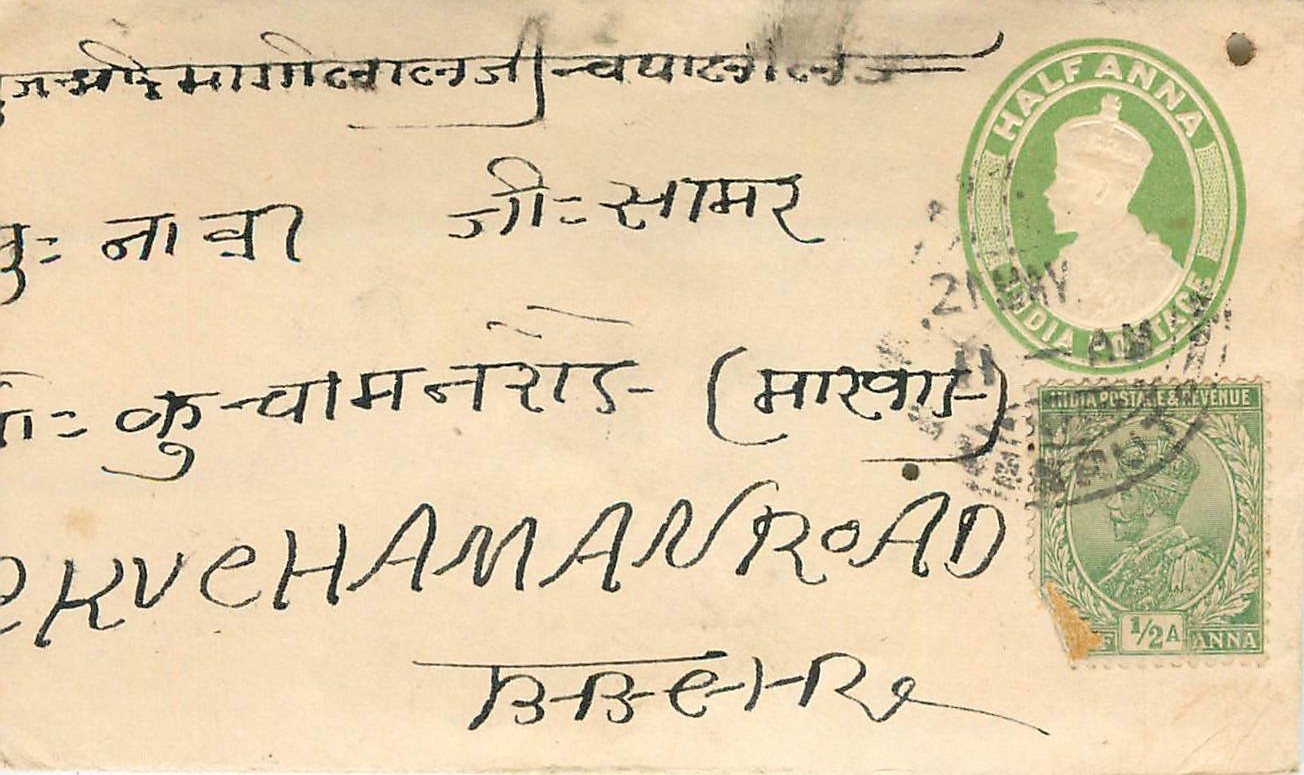 मागीलालजी चपालालज
नावा जी= सामर
कुचामनरोड (मारवाड)
KUCHAMANROAD
B-B-C-I-Ry
HALF ANNA
INDIA POSTAGE
21 MAY
11-AM
INDIA POSTAGE & REVENUE
1/2A ANNA